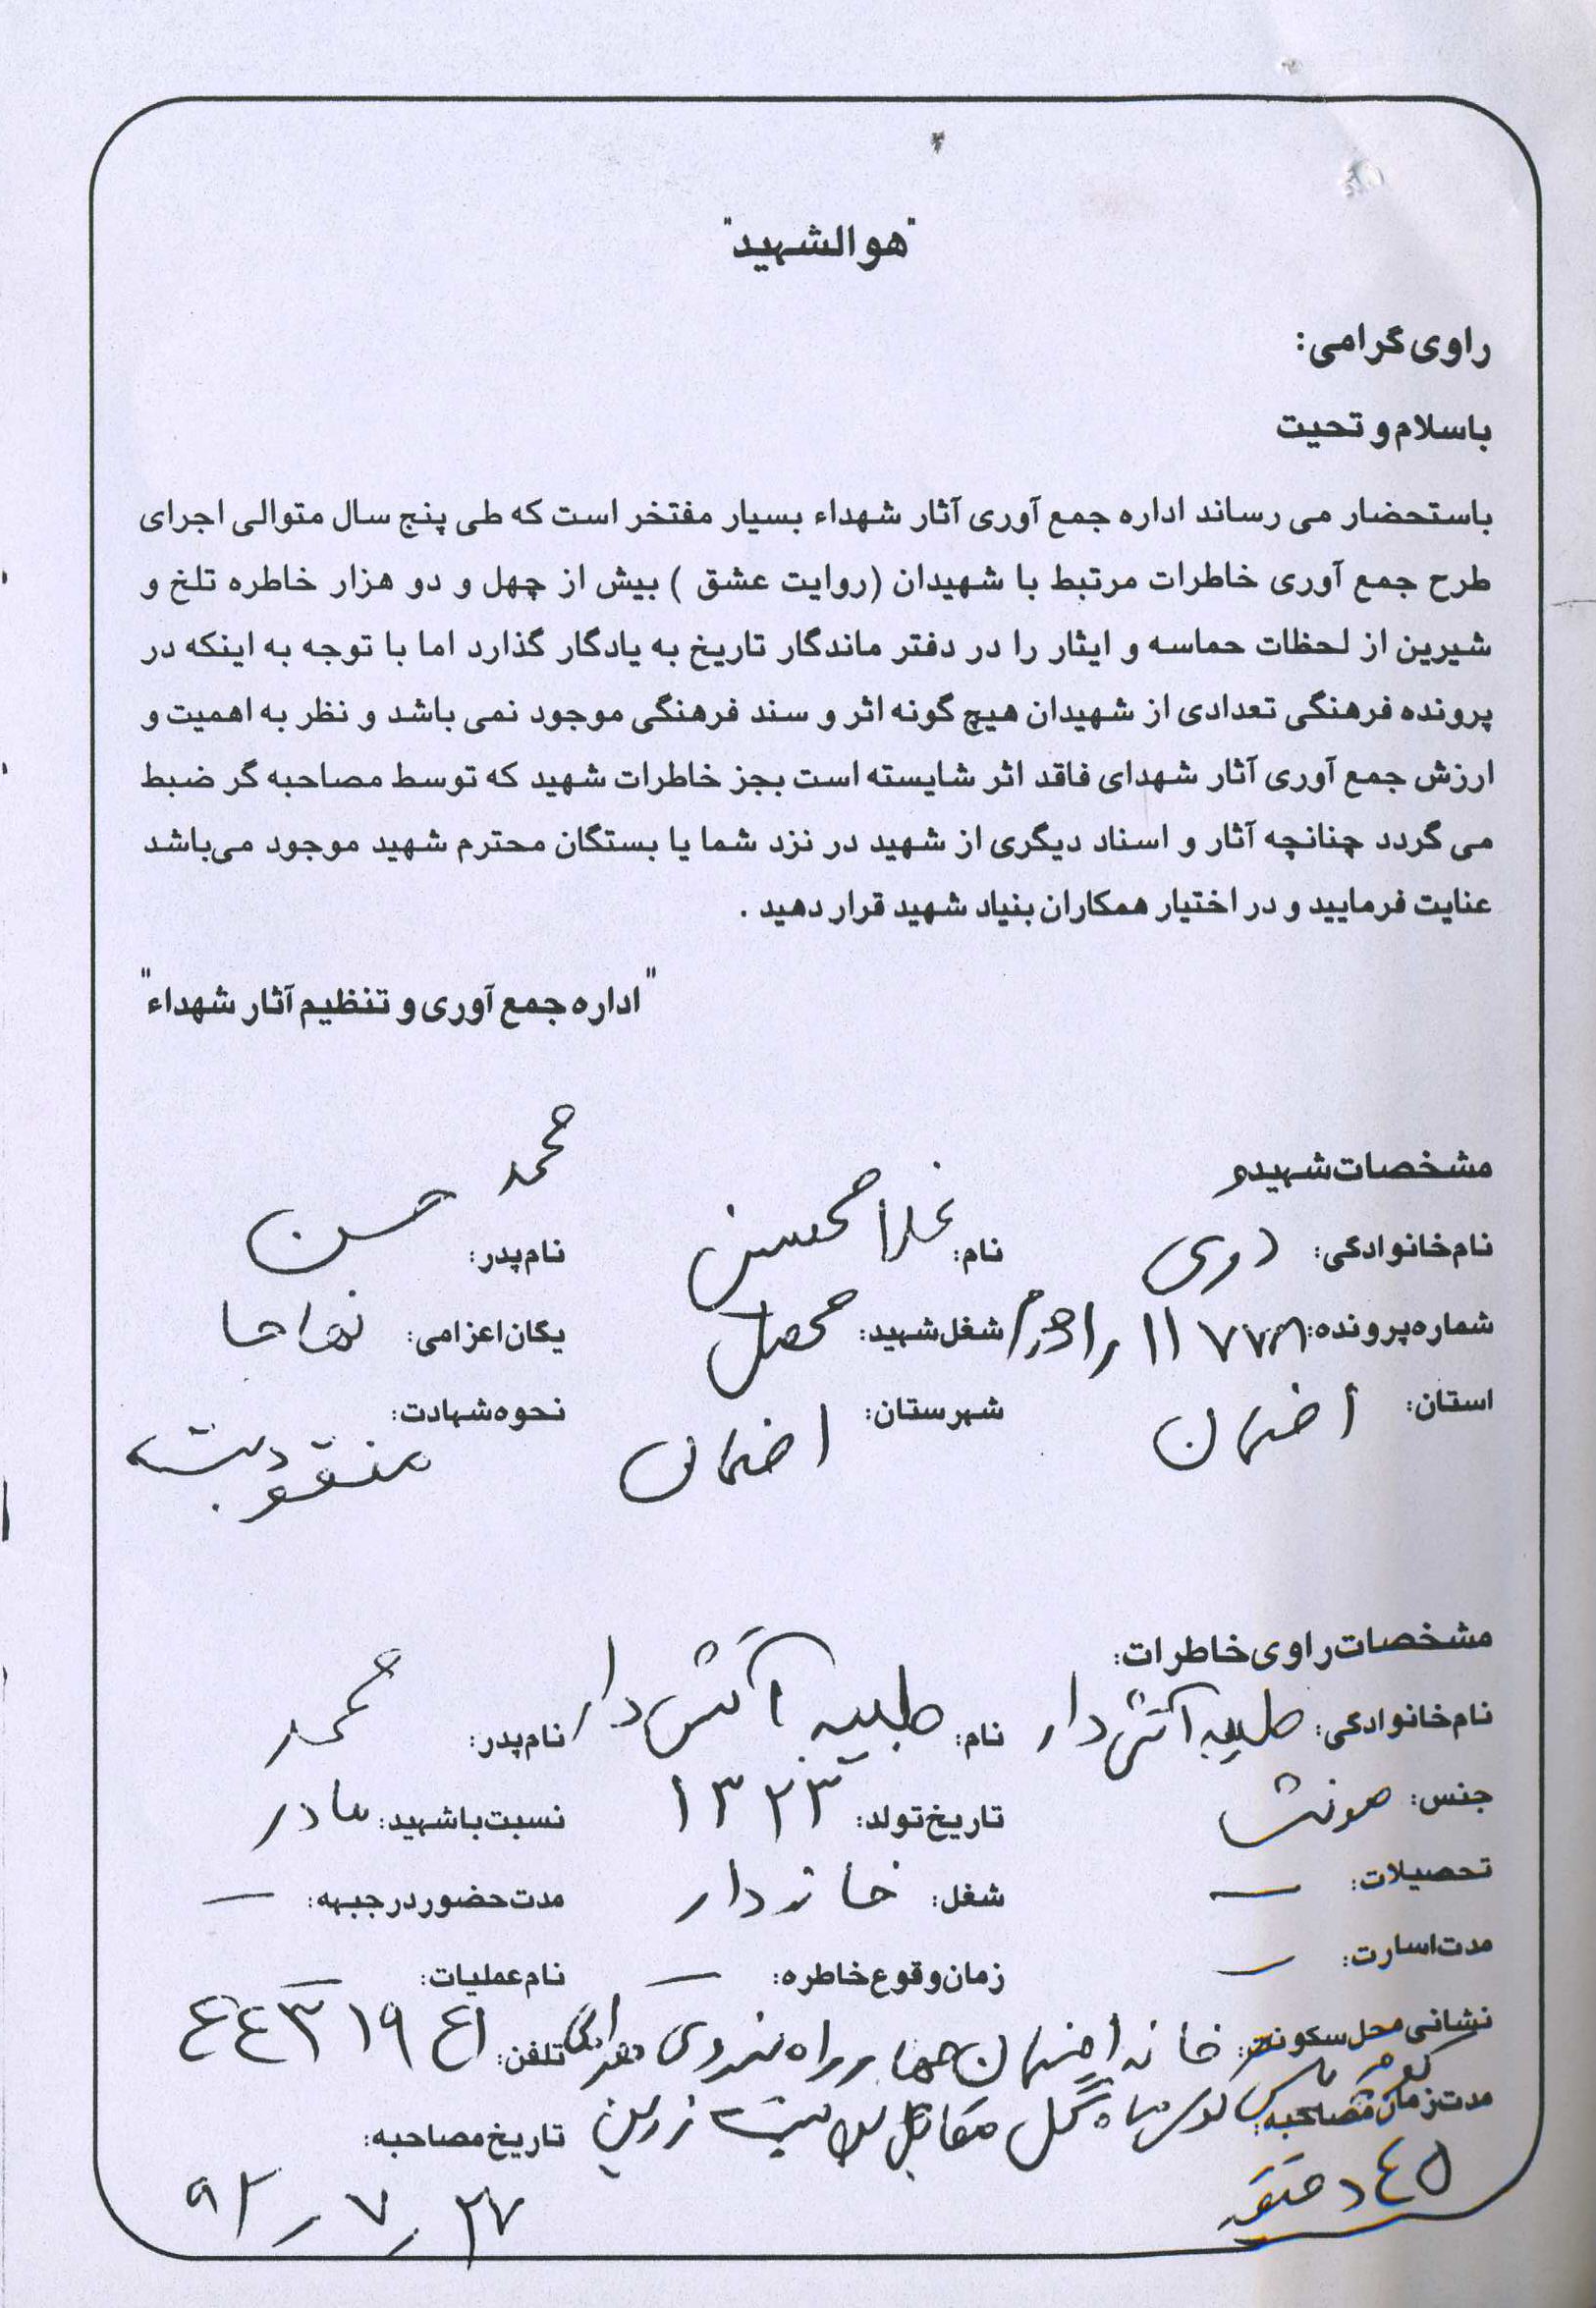 "هوالشهید"
راوی گرامی:
باسلام و تحیت
باستحضار می رساند اداره جمع آوری آثار شهداء بسیار مفتخر است که طی پنج سال متوالی اجرای
طرح جمع آوری خاطرات مرتبط با شهیدان (روایت عشق ) بیش از چهل و دو هزار خاطره تلخ و
شیرین از لحظات حماسه و ایثار را در دفتر ماندگار تاریخ به یادگار گذارد اما با توجه به اینکه در
پرونده فرهنگی تعدادی از شهیدان هیچ گونه اثر و سند فرهنگی موجود نمی باشد و نظر به اهمیت و
ارزش جمع آوری آثار شهدای فاقد اثر شایسته است بجز خاطرات شهید که توسط مصاحبه گر ضبط
می گردد چنانچه آثار و اسناد دیگری از شهید در نزد شما یا بستگان محترم شهید موجود می‌باشد
عنایت فرمایید و در اختیار همکاران بنیاد شهید قرار دهید .
"اداره جمع آوری و تنظیم آثار شهداء"
مشخصات شهید
نام خانوادگی: نام: غلامحسین نام پدر: محمد حسن
شماره پرونده: ۱۱۷۷۸ شغل شهید: محصل یگان اعزامی: نهاجا
استان: اصفهان شهرستان: اصفهان نحوه شهادت:
مشخصات راوی خاطرات:
نام خانوادگی: طیبه آتش دار نام: طیبه آتش دار نام پدر: محمد
جنس: مونث تاریخ تولد: ۱۳۲۳ نسبت با شهید: مادر
تحصیلات: — شغل: خانه دار مدت حضور در جبهه: —
مدت اسارت: — زمان وقوع خاطره: — نام عملیات: —
نشانی محل سکونت: خانه اصفهان چهار راه تلفن: ۴۴۳۱۹۴۱
مدت زمان مصاحبه: گل مقابل زرین تاریخ مصاحبه:
۴۵ دقیقه ۹۲/۷/۲۷